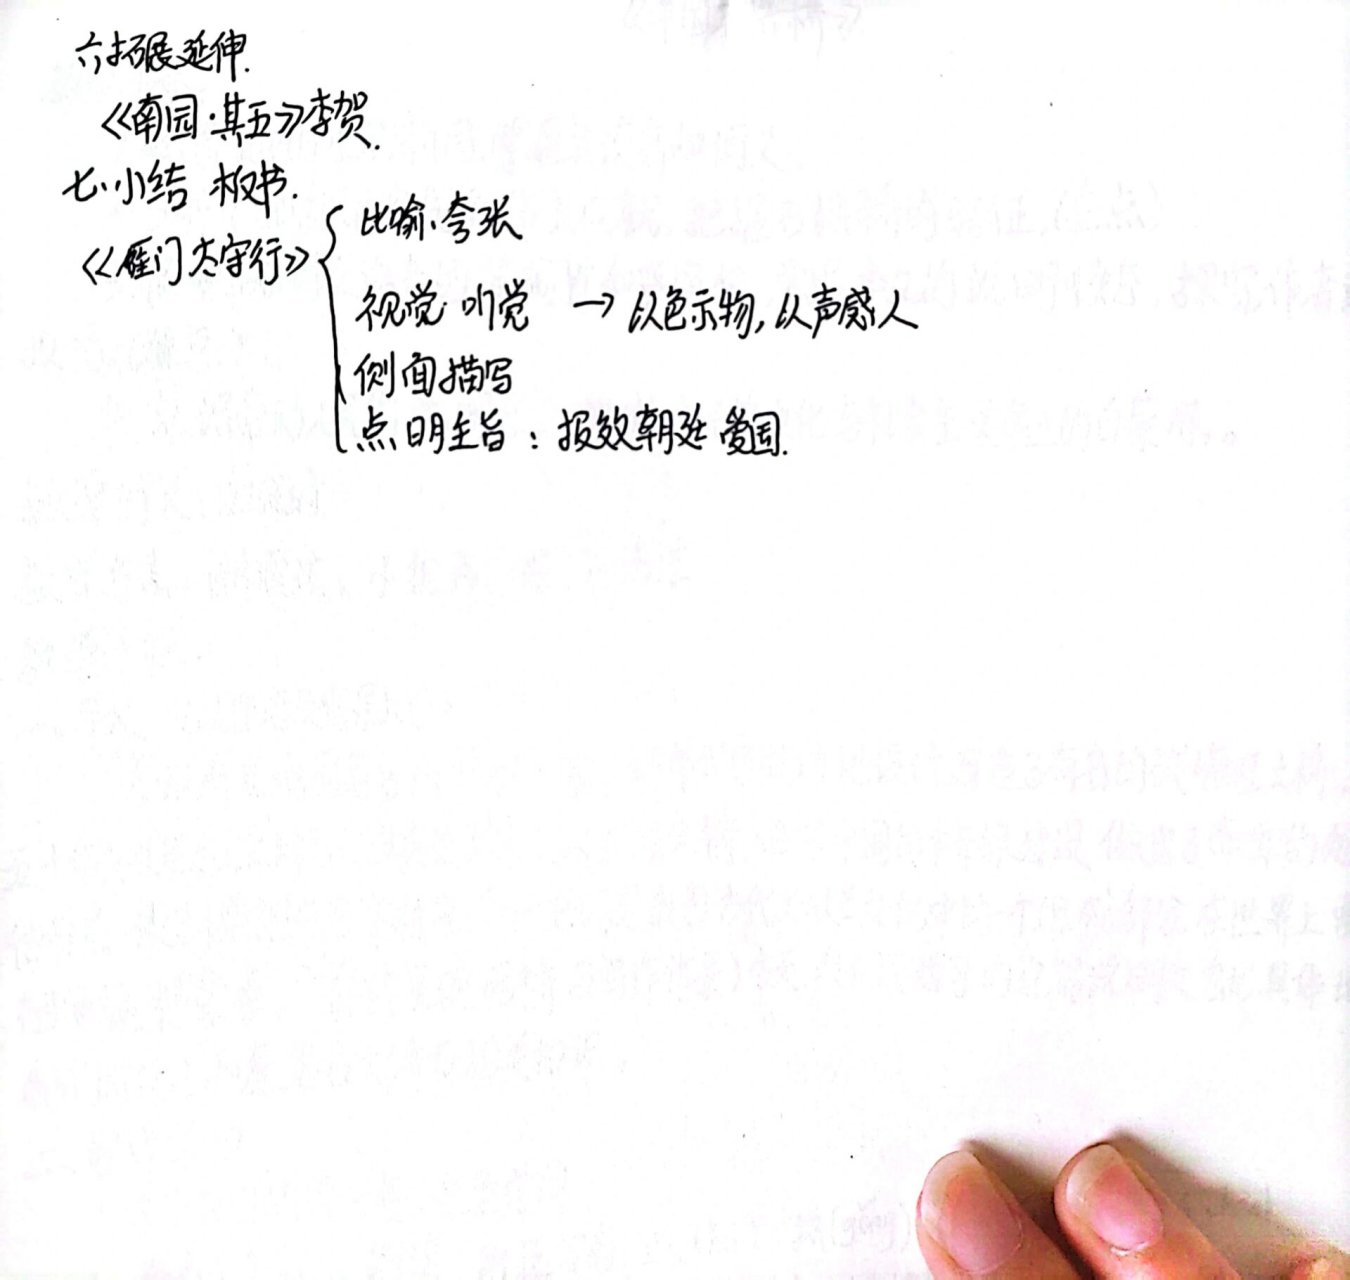 六、拓展延伸.
《南园·其五》李贺.
七、小结 板书.
《雁门太守行》
比喻、夸张
视觉·听觉 → 以色示物,以声感人
侧面描写
点明主旨:报效朝廷 爱国.